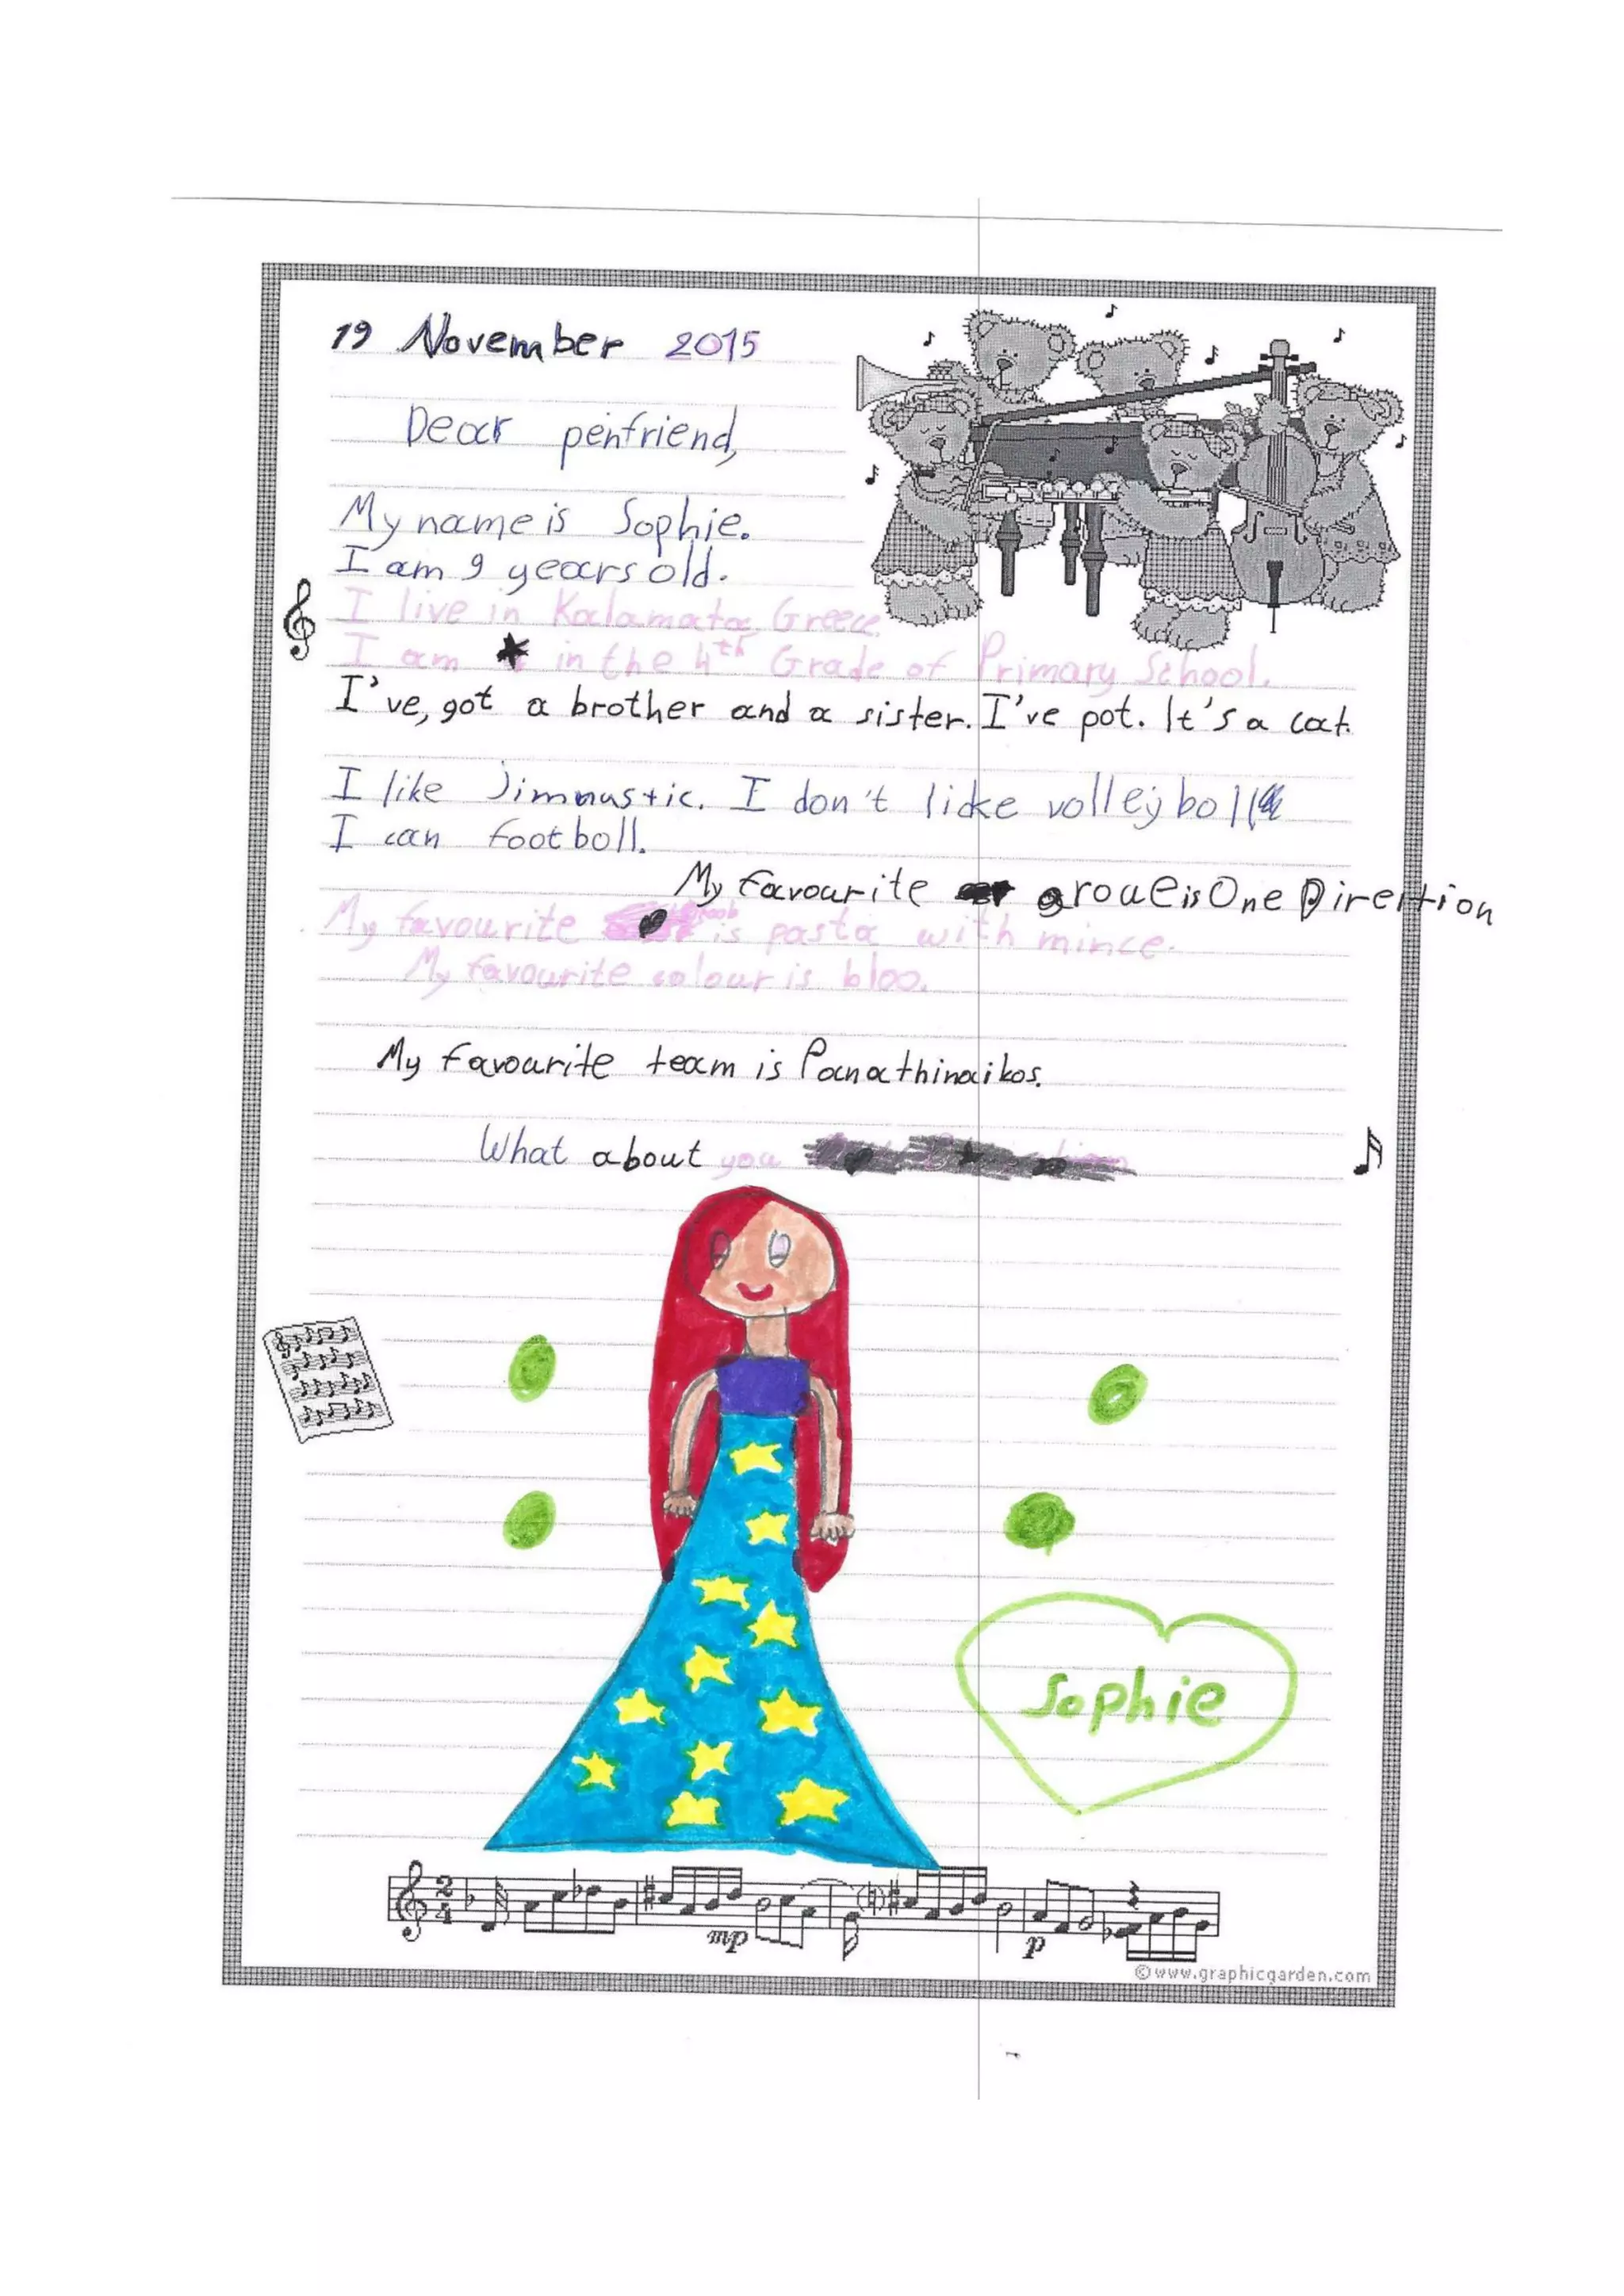 19 November 2015
Dear penfriend,
My name is Sophie.
I am 9 years old.
I live in Kalamata, Greece.
I am in the 4th Grade of Primary School.
I've, got a brother and a sister. I've pot. It's a cat.
I like Jimnastic. I don't like volleyboll
I can footboll.
My favourite groue is One Direrition
My favourite is pasta with mince.
My favourite colour is bloo.
My favourite team is Panathinaikos.
What about you
Sophie
mp
p
©www.graphicgarden.com